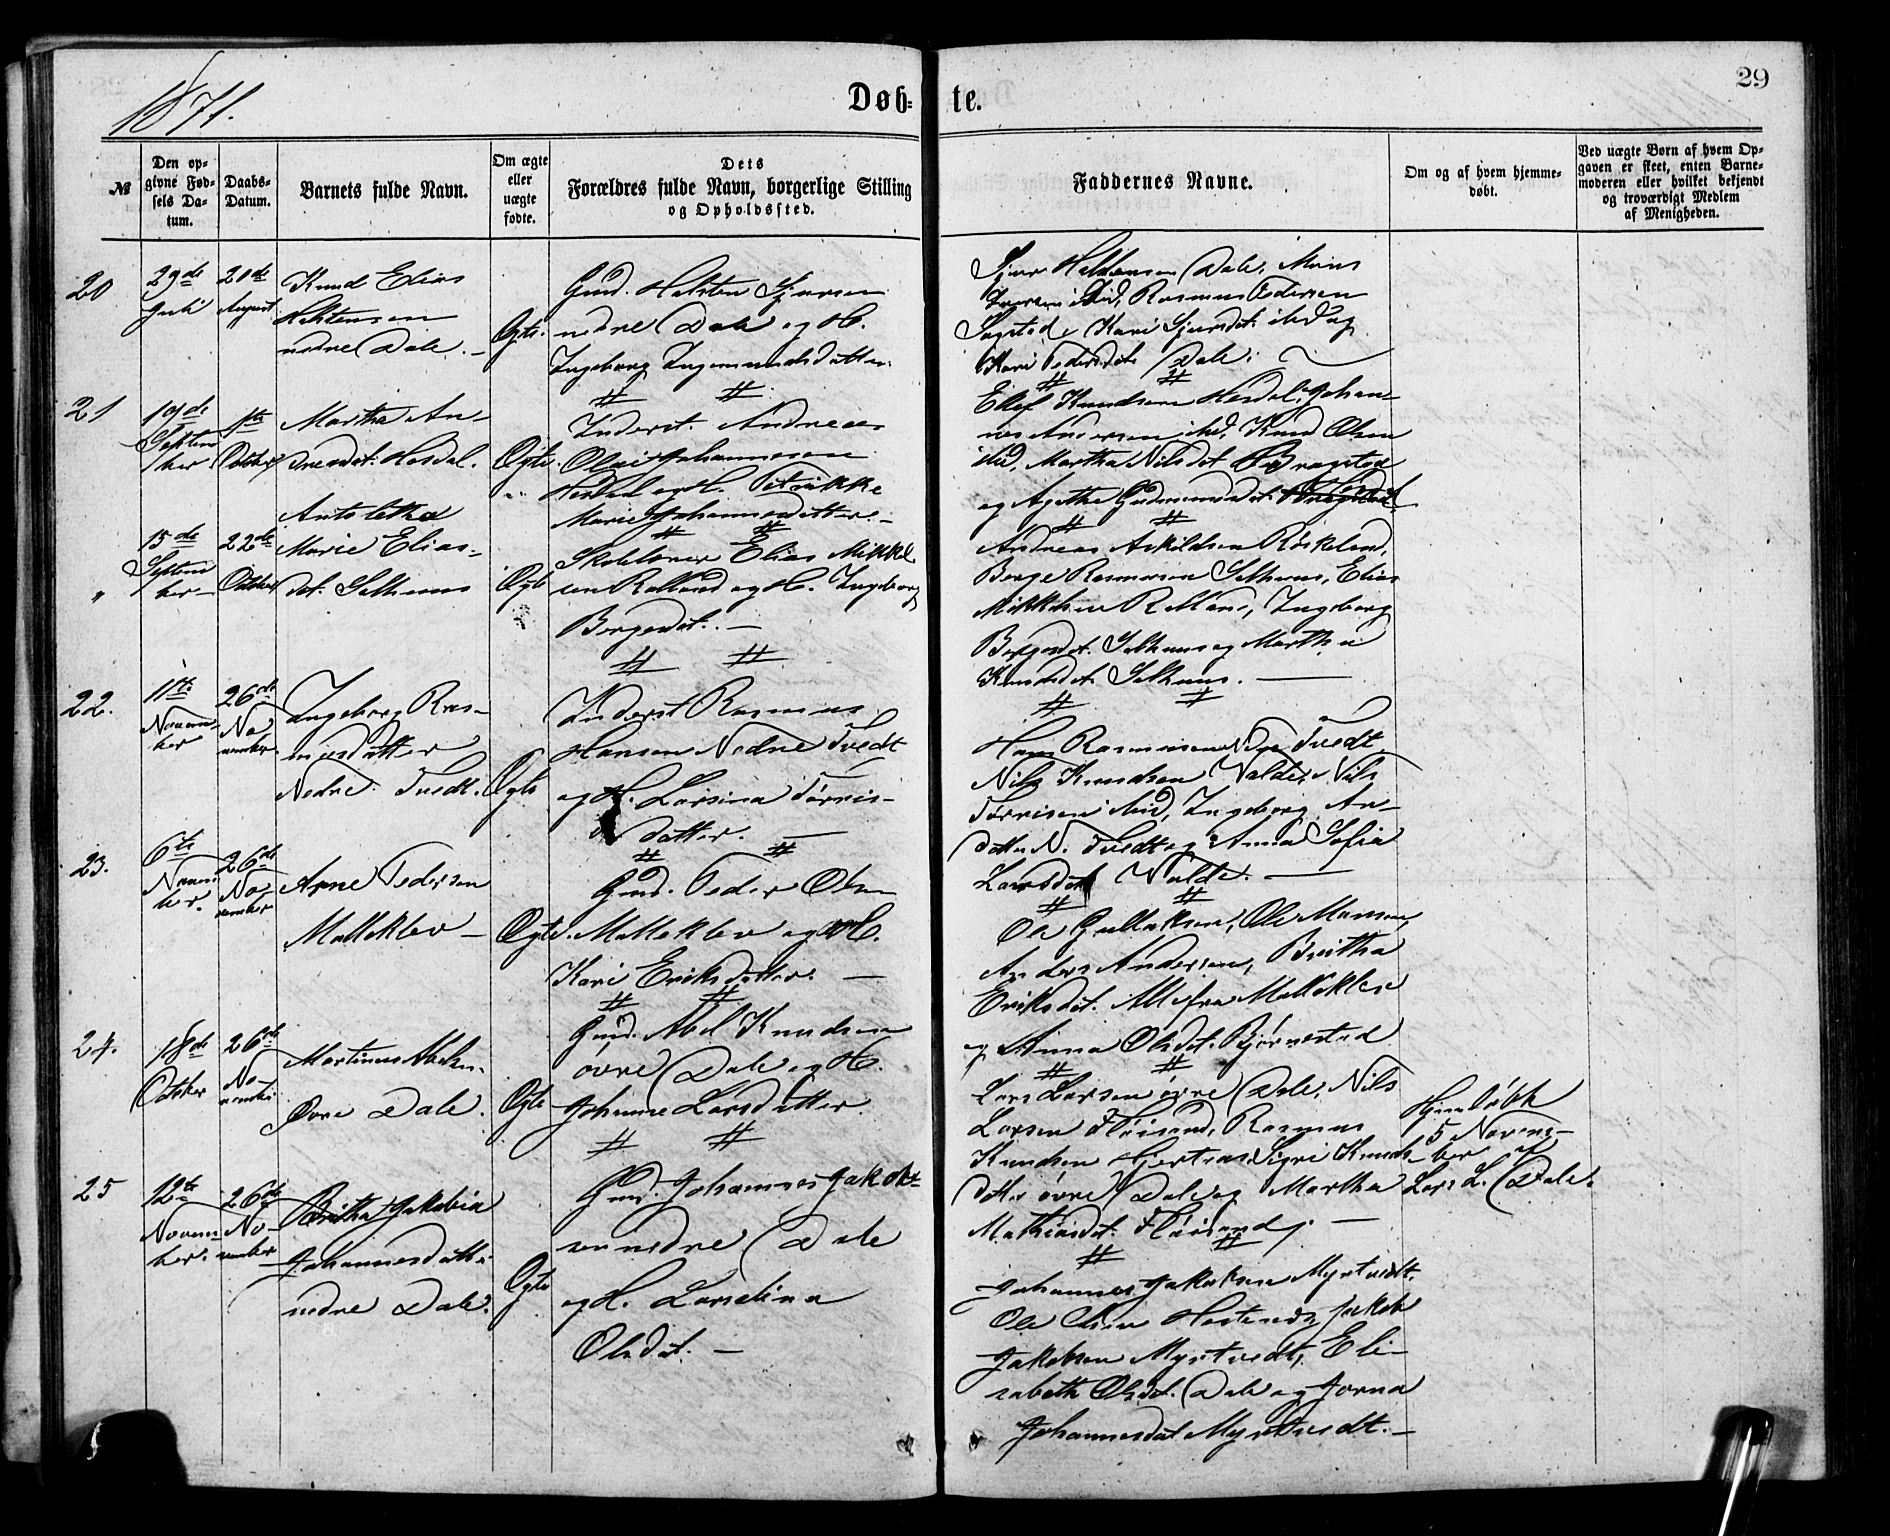 1871.
Døb-
te.
29
№
Den op-
givne Fød-
sels Da-
tum.
Daabs-
Datum.
Barnets fulde Navn.
Om ægte
eller
uægte
fødte.
Dets
Forældres fulde Navn, borgerlige Stilling
og Opholdssted.
Faddernes Navne.
Om og af hvem hjemme-
døbt.
Ved uægte Børn af hvem Op-
gaven er skeet, enten Barne-
moderen eller hvilket bekjendt
og troværdigt Medlem
af Menigheden.
20
29de
Juli
20de
August
Knud Elias
Halstensen
nedre Dale. –
Ægte.
Gmd. Halsten Sjursen
nedre Dale og H.
Ingeborg Ingemundsdatter.
Sjur Halstensen Dale, Mons
Iversen ibid, Rasmus Pedersen
Kari Sjursdt. ibid og
Kari Pedersdt. Dale.
21
19de
Septem
ber
1ste
October
Martha An-
dreasdt. Hesdal.
Ægte.
Inderst. Andreas
Olai Johannesen
Hesdal og H. Petrikke
Marie Johannesdatter. –
Elef Knudsen Hesdal, Johan-
nes Andersen ibid, Knud Olsen
ibid, Martha Nilsdt. Bragstad
og Agathe Gudmundsdt.
"
15de
Septem
ber –
22de
October
Marie Elias-
dt. Selheim
Ægte
Skolelærer Elias Mikkel
sen Rolland og H. Ingeborg
Bergesdt. –
Andreas Askildsen Røskeland,
Berge Rasmussen Selheim, Elias
Mikkelsen Rolland, Ingeborg
Bergesdt. Selheim og Martha
Knudsdt. Selheim. –
22.
11te
Novem
ber
26de
No
vember
Ingeborg Ras-
musdatter
Nedre Tvedt.
Ægte
Inderst Rasmus
Hansen Nedre Tvedt
og H. Larsina Tørris-
datter. –
Hans Rasmussen Nedre Tvedt,
Nils Knudsen Valde, Nils
Tørrisen ibid, Ingeborg An-
datter N. Tvedt og Anna Sofia
Larsdt. Valde. –
23.
6te
Novem
ber.
26de
No-
vember
Arne Pedersen
Molleklev –
Ægte.
Gmd. Peder Olsen
Molleklev og H.
Kari Eriksdatter. –
Ole Gullaksen, Ole Monsen,
Anders Andersen, Britha
Eriksdt. Alle fra Molleklev
og Anna Olsdt. Bjørnestad
24.
18de
October
26de
No-
vember
Martinus Abelsen.
Øvre Dale.
Ægte
Gmd. Abel Knudsen
øvre Dale og H.
Johanne Larsdatter.
Lars Larsen øvre Dale, Nils
Larsen Fløisand, Rasmus
Knudsen Hjertaas, Sigri Knuds-
datter øvre Dale og Martha
Mathiasdt. Fløisand. –
Hjemdøbt
5 Novem-
ber af
Lars L. Dale.
25
12te
Novem
ber.
26de
No-
vember
Britha Jakobia
Johannesdatter
nedre Dale.
Ægte
Gmd. Johannes Jakob-
sen nedre Dale
og H. Larselina
Olsdt. –
Johannes Jakobsen Myrtvedt.
Ole Olsen Jakob
Jakobsen Myrtvedt, Eli-
sabeth Olsdt. Dale og Jorina
Johannesdt Myrtvedt. –